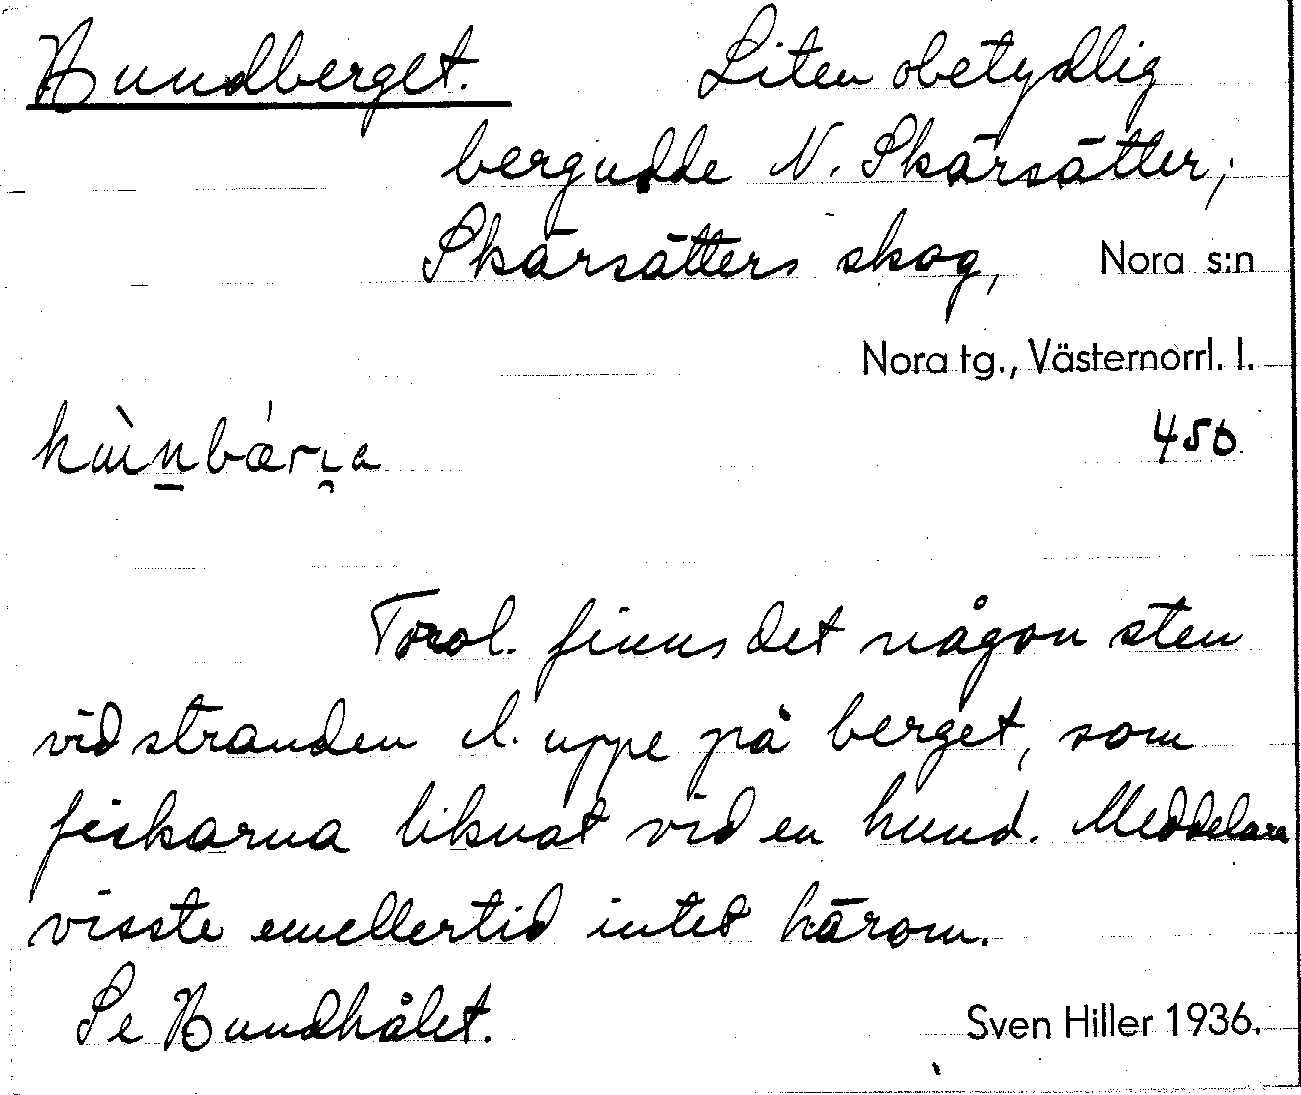 Hundberget. Liten obetydlig
bergudde N. Skärsätter;
Skärsätters skog, Nora s:n
Nora tg., Västernorrl. l.
450
Torol. finns det någon sten
vid stranden l. uppe på berget, som
fiskarna liknat vid en hund. Meddelare
visste emellertid intet härom.
Se Hundhålet. Sven Hiller 1936.